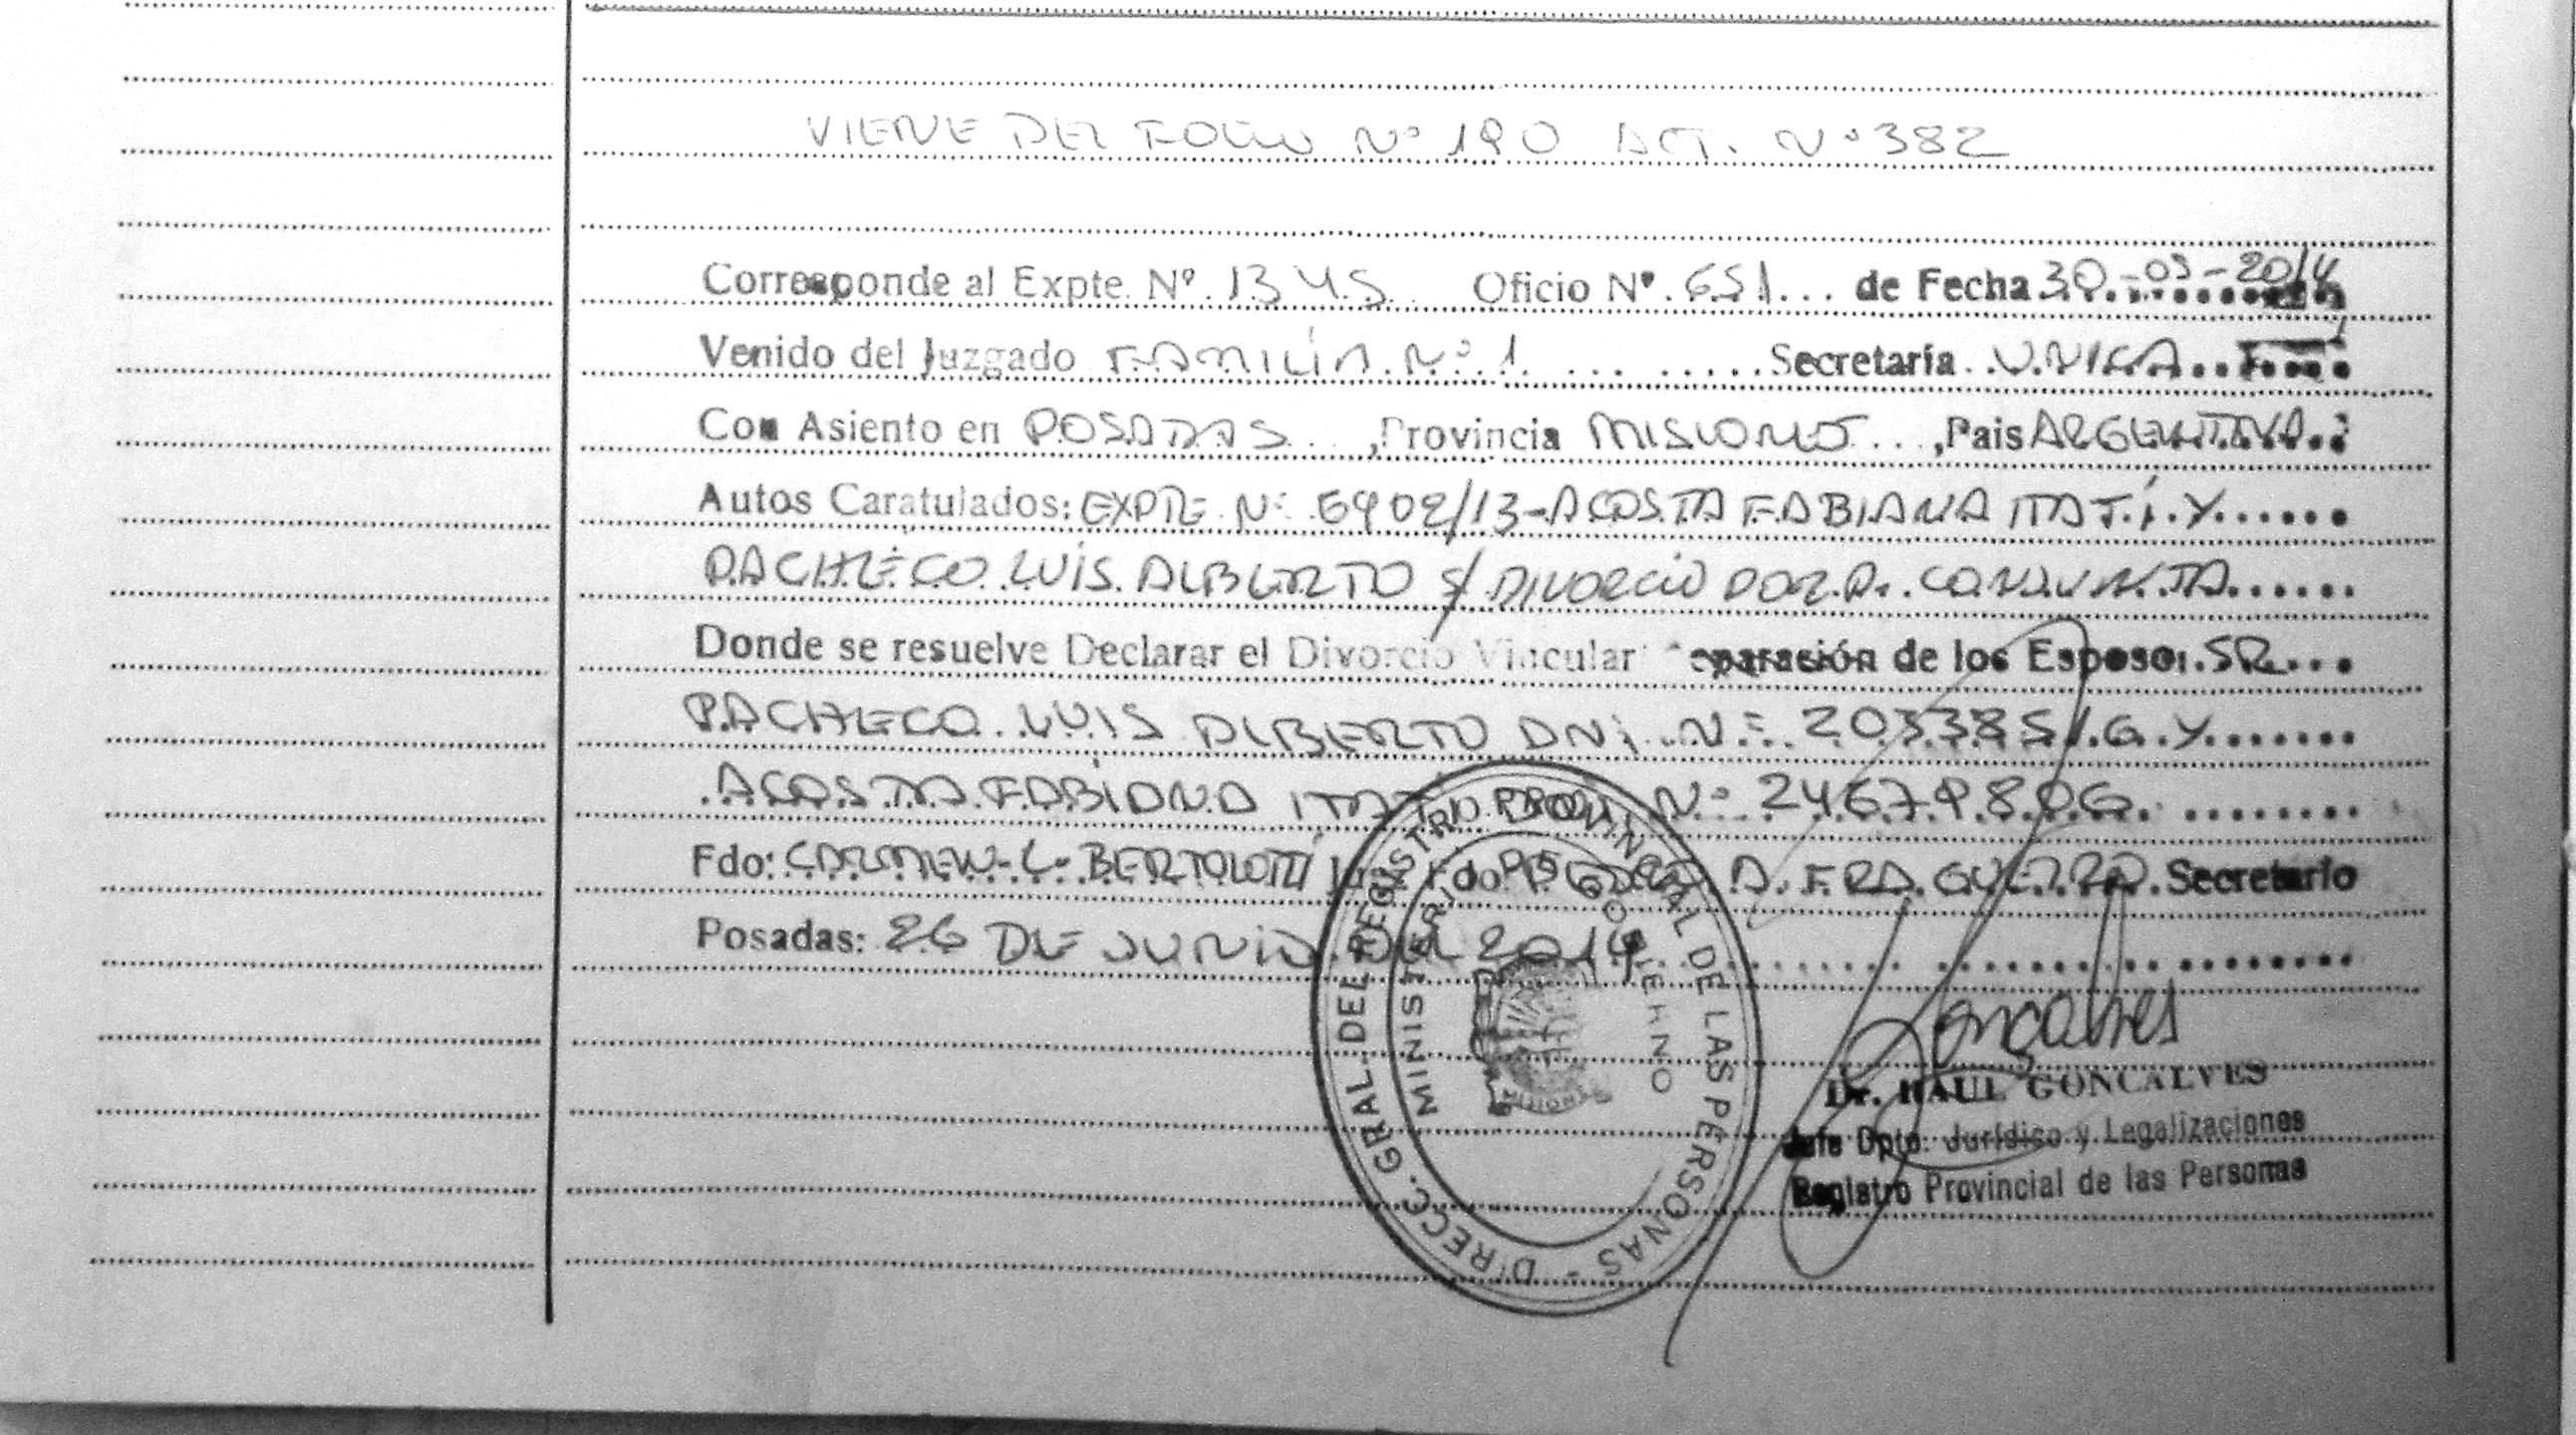 VIENE DEL FOLIO Nº 190 ACT. Nº 382
Corresponde al Expte. Nº 1345 Oficio Nº 651 de Fecha 30-05-2014
Venido del Juzgado FAMILIA Nº 1 Secretaría UNICA
Con Asiento en POSADAS, Provincia MISIONES, Pais ARGENTINA
Autos Caratulados: EXPTE Nº 6902/13-ACOSTA FABIANA ITATÍ Y
PACHECO LUIS ALBERTO S/ DIVORCIO POR P. CONJUNTA
Donde se resuelve Declarar el Divorcio Vincular de los Esposos SR
PACHECO LUIS ALBERTO DNI Nº 20338516 Y
ACOSTA FABIANA Nº 24679806
Fdo: CARMEN C. BERTOLOTTI Fdo A. FRA. GUERRA Secretario
Posadas: 26 DE JUNIO DEL 2014
DIRECC. GRAL DEL REGISTRO PROVINCIAL DE LAS PERSONAS -
MINISTERIO DE GOBIERNO
MISIONES
Goncalves
Dr. RAUL GONCALVES
Jefe Dpto. Jurídico y Legalizaciones
Registro Provincial de las Personas